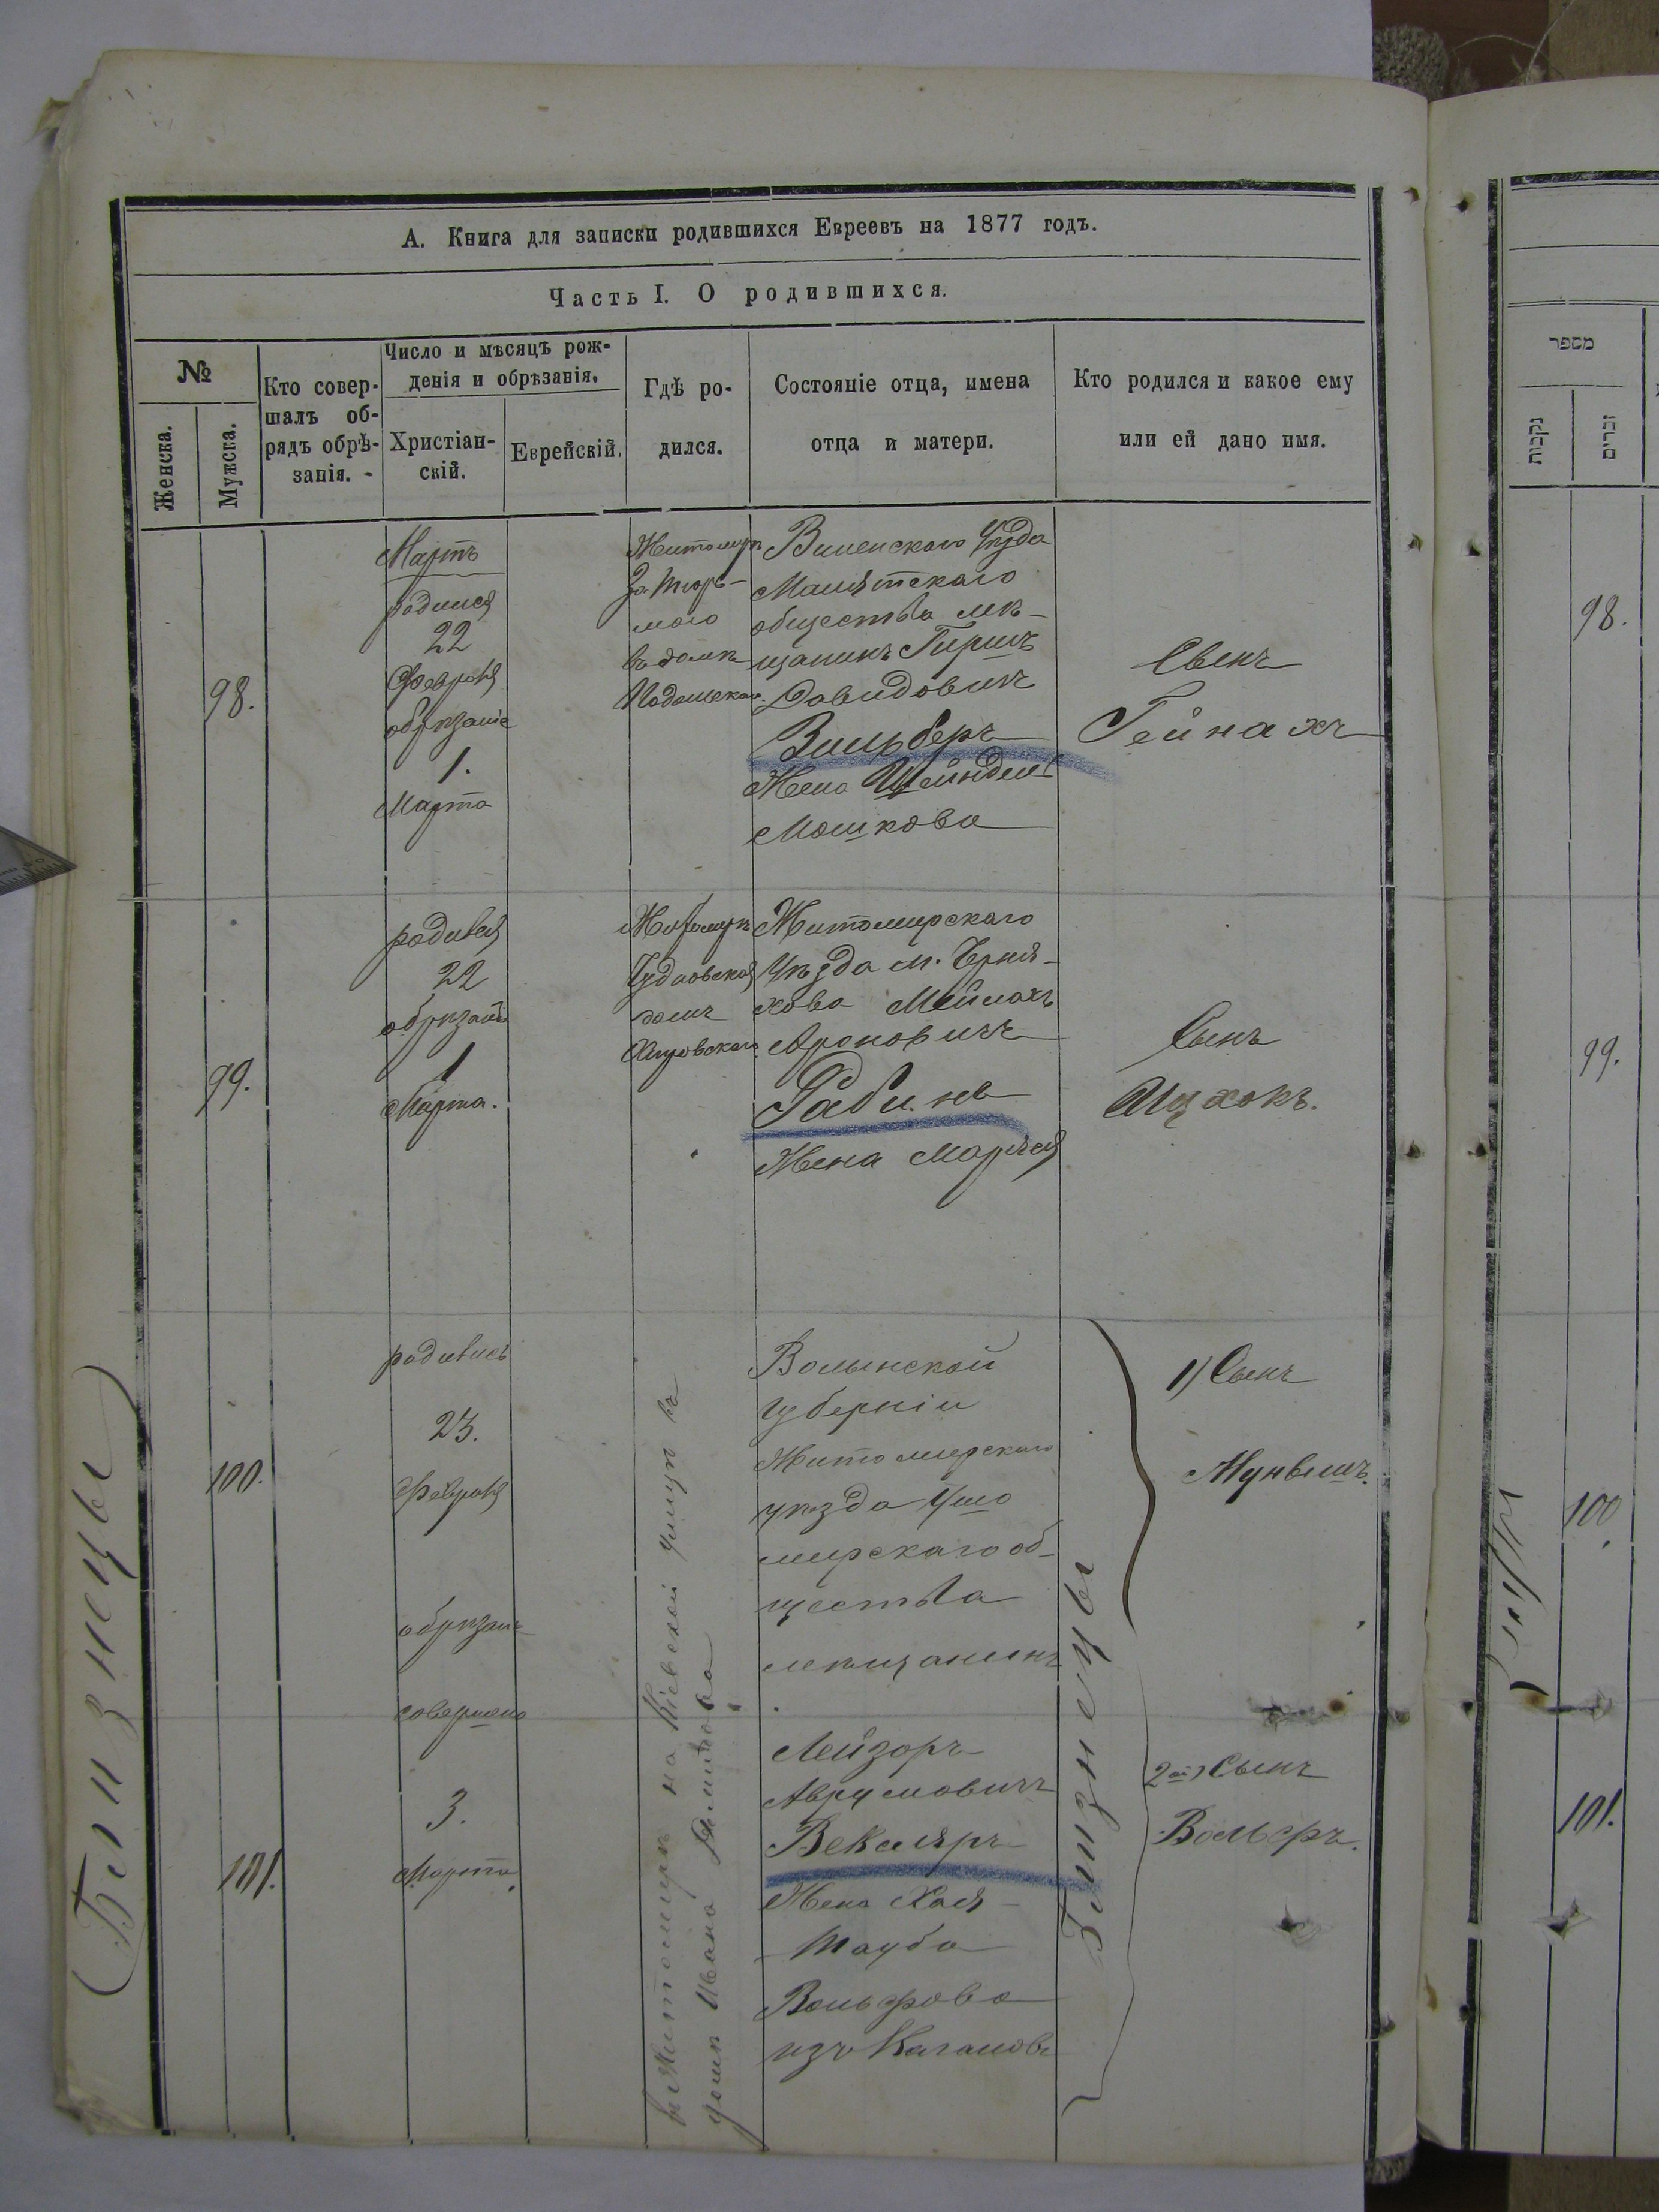 А. Книга для записки родившихся Евреевъ на 1877 годъ.
Часть I. О родившихся.
№
Женска.
Мужска.
Кто совер-
шалъ об-
рядъ обрѣ-
занія.
Число и мѣсяцъ рож-
денія и обрѣзанія.
Христіан-
скій.
Еврейскій.
Гдѣ ро-
дился.
Состояніе отца, имена
отца и матери.
Кто родился и какое ему
или ей дано имя.
98.
Мартъ
родился
22
Февраля
обрѣзаніе
1.
Марта
Житомирѣ
за тюрь-
мою
въ домѣ
Виленскаго Уѣзда
Малятскаго
общества мѣ-
щанинъ Гиршъ
Давидовичъ
Зильберъ
Жена Шейндель
Мошкова
Сынъ
Гейнахъ
99.
родился
22
обрѣзаніе
1
Марта.
Житомирѣ
Чудновская
домъ
Житомирскаго
Уѣзда м. Черня-
хова Меймахъ
Ароновичъ
Рабинъ
Жена
Сынъ
Ицхокъ.
(Близнецы)
100.
101.
родились
23.
Февраля
обрѣзаніе
совершено
3.
Марта.
въ Житомирѣ на Кіевской улицѣ въ
домѣ Ивана
Волынской
губерніи
Житомирскаго
уѣзда Ушо
мирскаго об-
щества
мѣщанинъ
Лейзоръ
Аврумовичъ
Векслеръ
Жена Хая
Тауба
Вольфова
изъ
Близнецы
1) Сынъ
2ой) Сынъ
Вольфъ.
מספר
נקבות
זכרים
98.
99.
100
101.